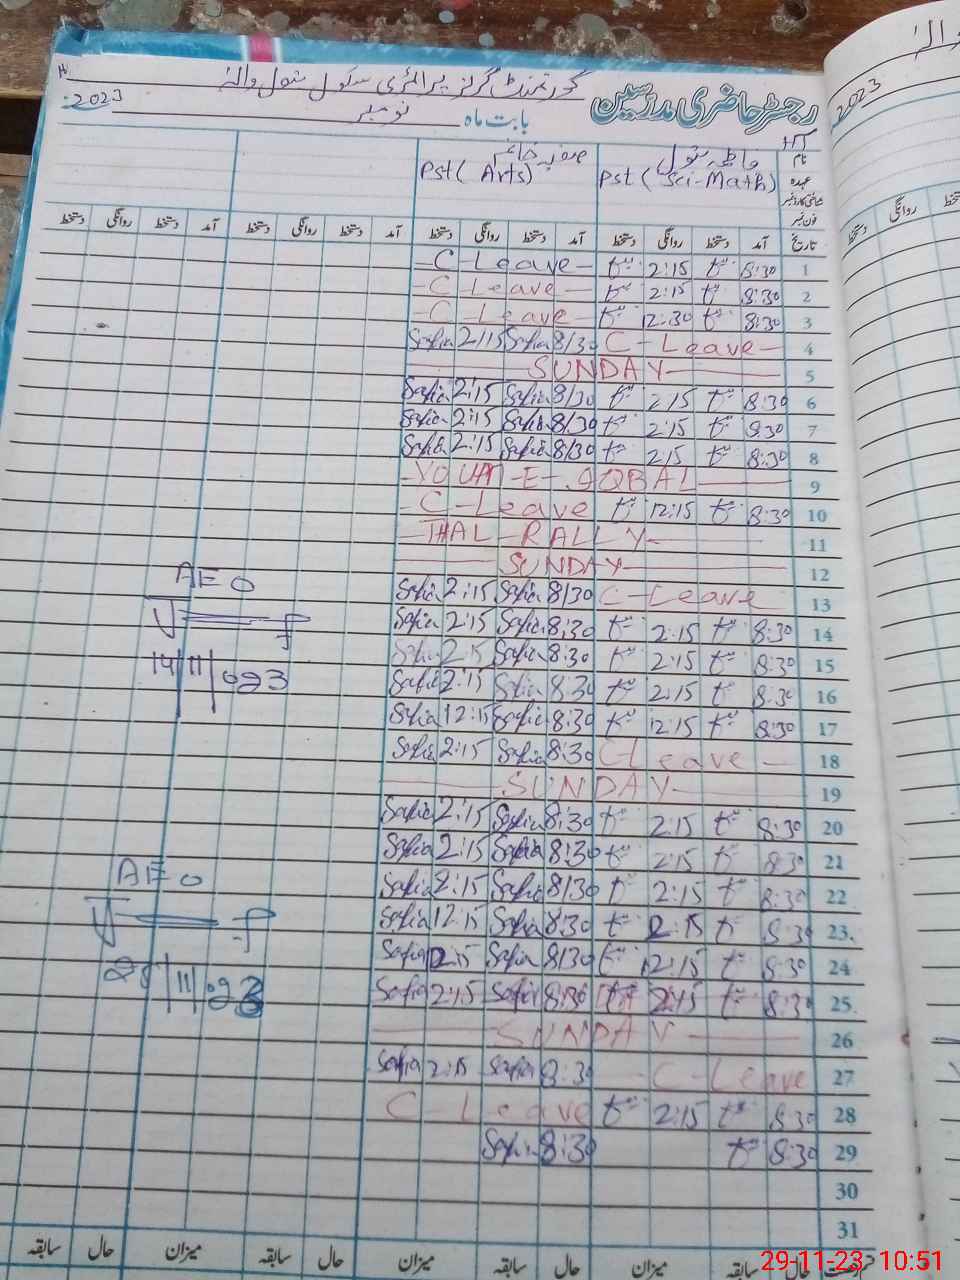 گورنمنٹ گرلز پرائمری سکول
2023
رجسٹر حاضری مدرسین
بابت ماہ نومبر
2023
نام
صفیہ خانم
عہدہ Pst (Sci-Math) Pst (Arts)
فون نمبر
تاریخ آمد دستخط روانگی دستخط آمد دستخط روانگی دستخط آمد دستخط روانگی دستخط آمد دستخط روانگی دستخط
روانگی دستخط
1 8:30 2:15 C-Leave
2 8:30 2:15 C-Leave
3 8:30 12:30 C-Leave
4 C-Leave 8/30 Safia 2/15 Safia
5 SUNDAY
6 8:30 2:15 8/30 Safia 2:15 Safia
7 8:30 2:15 8/30 Safia 2:15 Safia
8 8:30 2:15 8/30 Safia 2:15 Safia
9 YOUM-E-IQBAL
10 8:30 12:15 C-Leave
11 THAL RALLY
12 SUNDAY
13 C-Leave 8/30 Safia 2:15 Safia
AEO
14 8:30 2:15 8:30 Safia 2:15 Safia
15 8:30 2:15 8:30 Safia 2:15 Safia
14/11/023
16 8:30 2:15 8:30 Safia 2:15 Safia
17 8:30 12:15 8:30 Safia 12:15 Safia
18 C-Leave 8:30 Safia 2:15 Safia
19 SUNDAY
20 8:30 2:15 8:30 Safia 2:15 Safia
21 8:30 2:15 8:30 Safia 2:15 Safia
22 8:30 2:15 8/30 Safia 2:15 Safia
AEO
23 8:30 2:15 8:30 Safia 12:15 Safia
24 8:30 12:15 8/30 Safia 12:15 Safia
25 8:30 2:15 8:30 Safia 2:15 Safia
26 SUNDAY
27 C-Leave 8:30 Safia 2:15 Safia
28 8:30 2:15 C-Leave
29 8:30 8:30 Safia
30
31
حال سابقہ میزان حال سابقہ میزان حال سابقہ میزان حال سابقہ
29-11-23 10:51